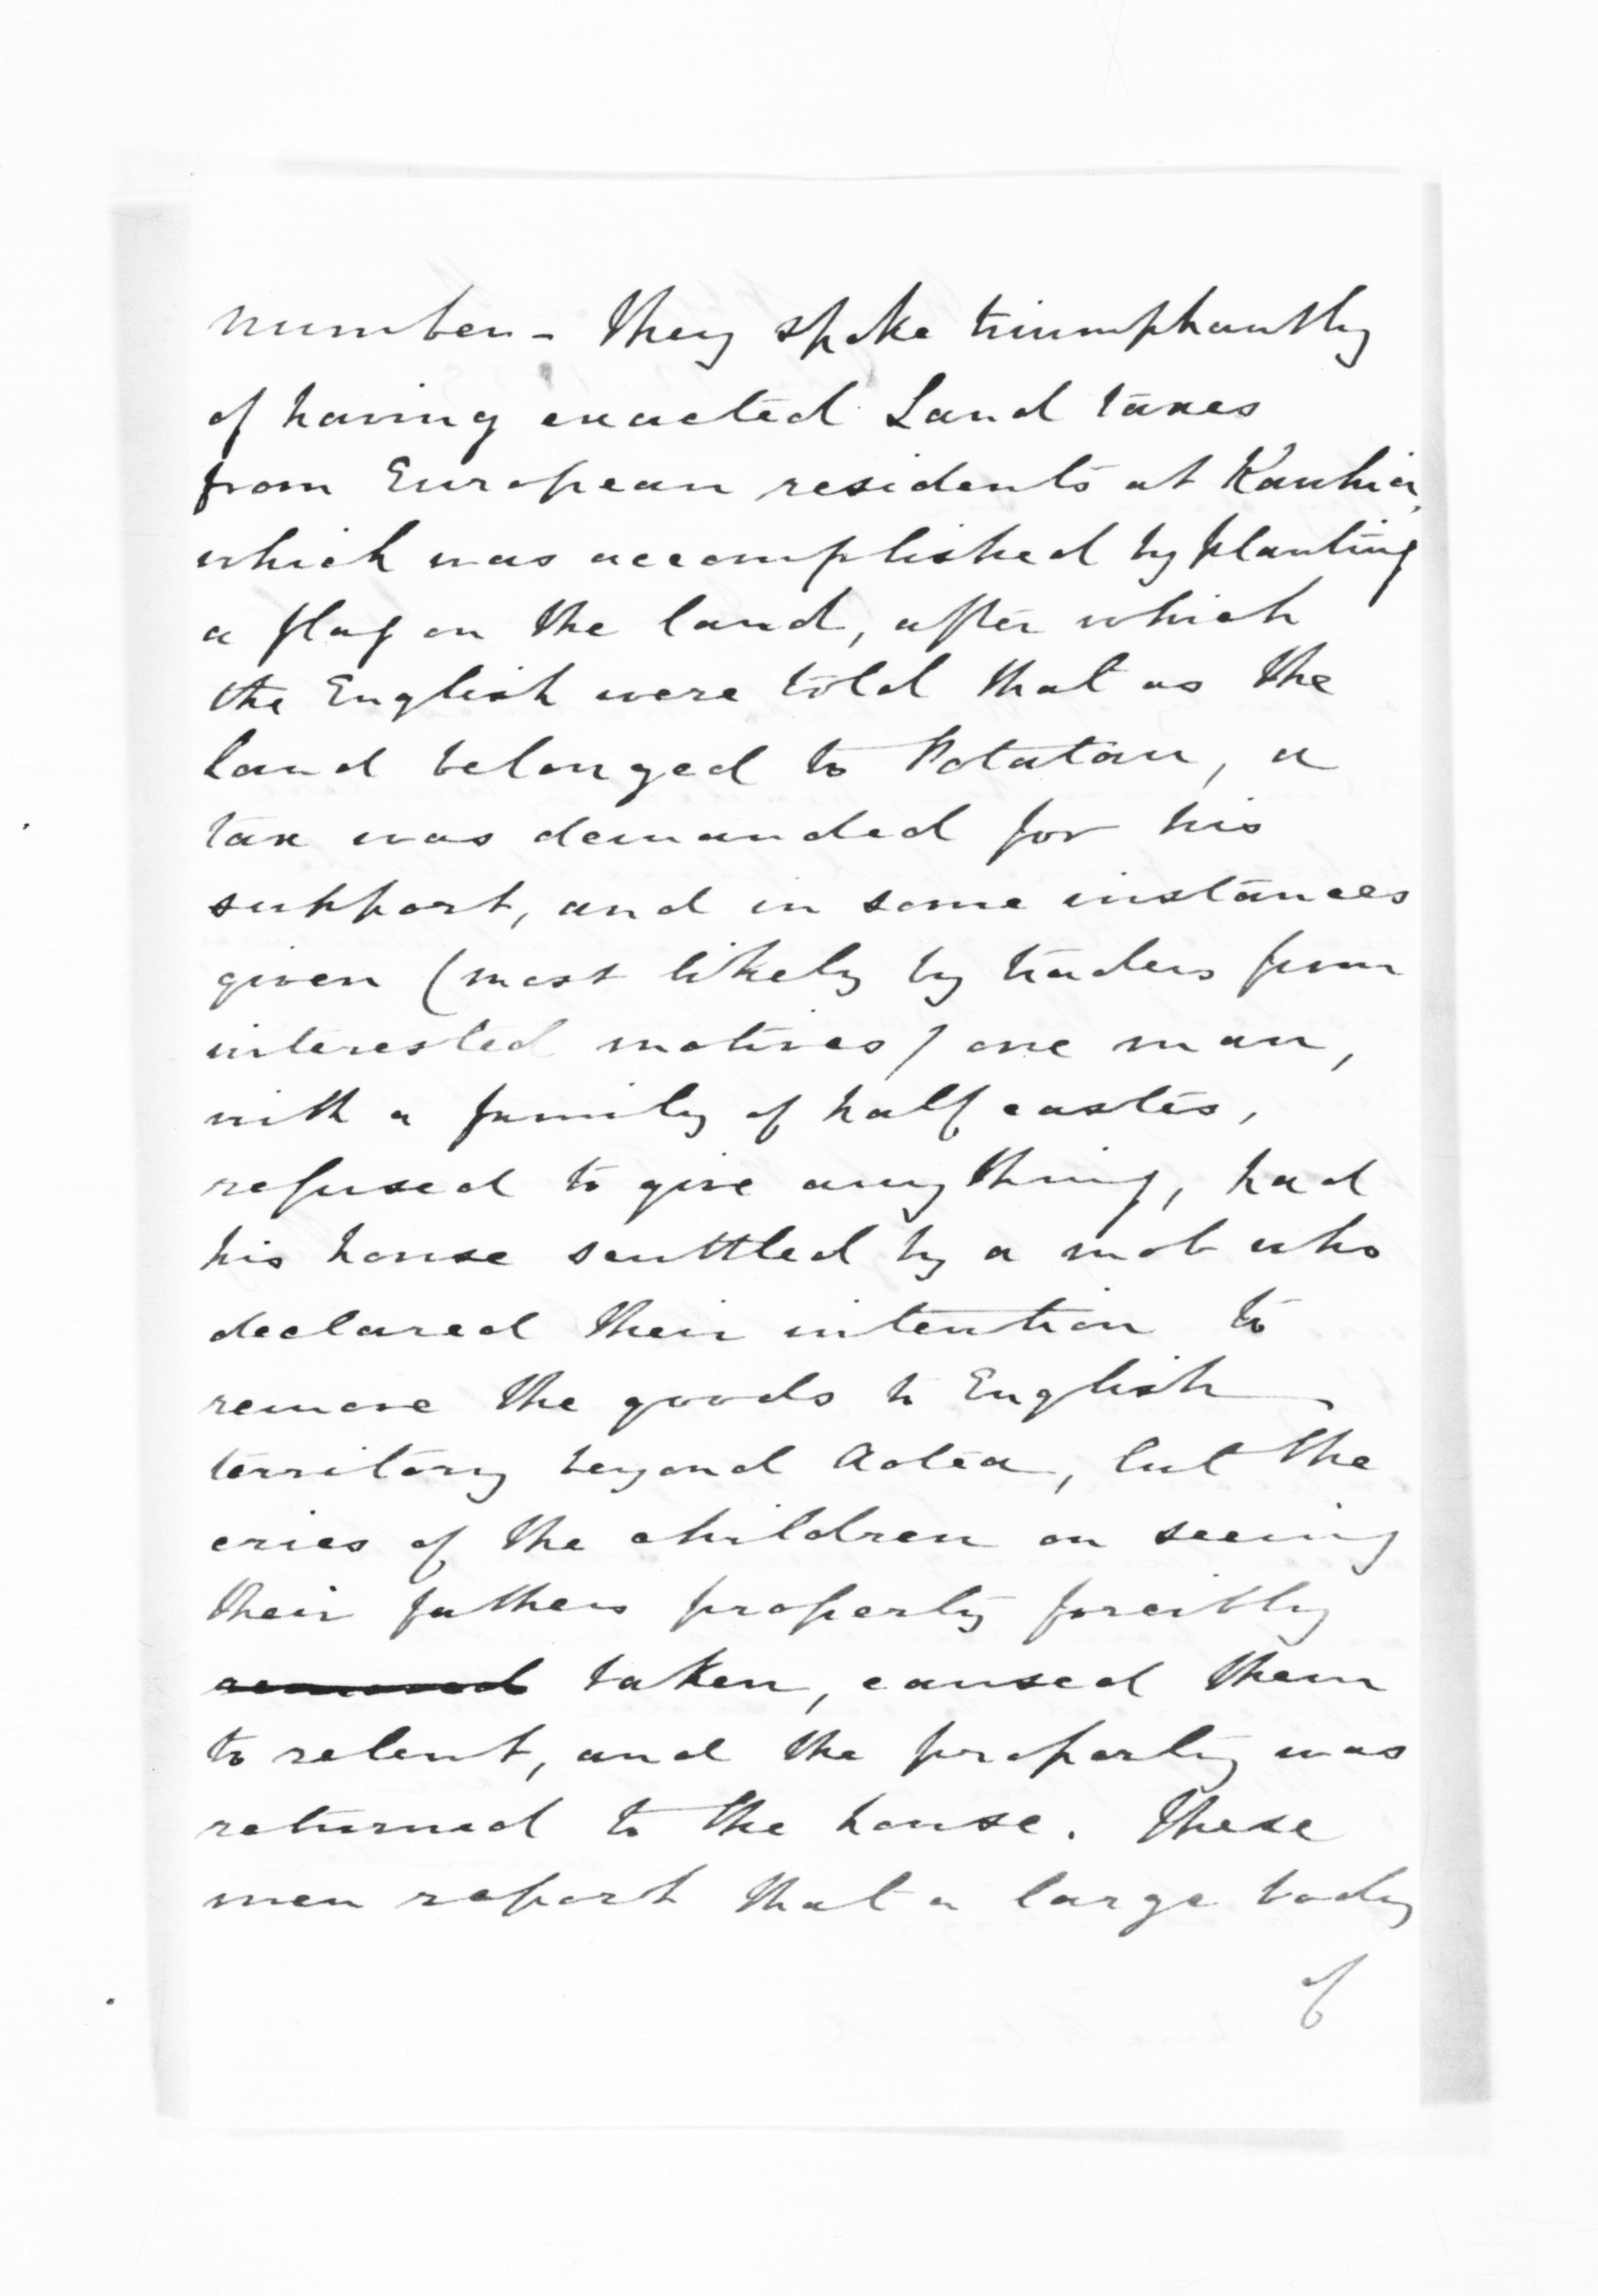 number - They spoke triumphantly
of having exacted Land taxes
from European residents at Kawhia,
which was accomplished by planting
a flag on the land, after which
the English were told that as the
land belonged to Potatau, a
tax was demanded for his
support, and in some instances
given (most likely by traders from
interested motives) one man,
with a family of half castes,
refused to give any thing, had
his house scuttled by a mob who
declared their intention to
remove the goods to English
territory beyond Aotea, but the
cries of the children on seeing
their fathers property forcibly
removed taken, caused them
to relent, and the property was
returned to the house. These
men report that a large body
of